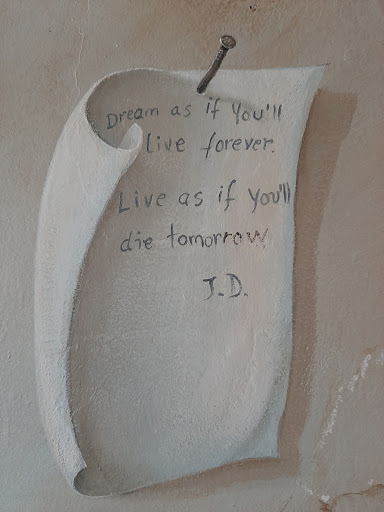 Dream as if You'll
live forever.
Live as if You'll
die tomorrow
J.D.